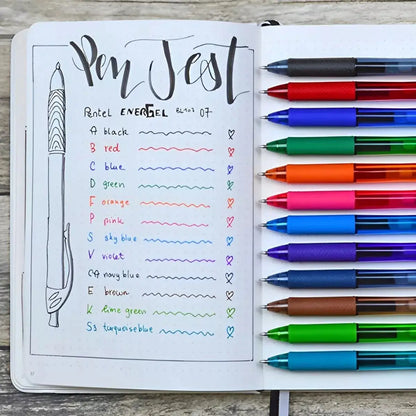 Pen Test
Pentel ENERGEL BL107 07
A black
B red
C blue
D green
F orange
P pink
S sky blue
V violet
CA navy blue
E brown
K lime green
S3 turquoise blue